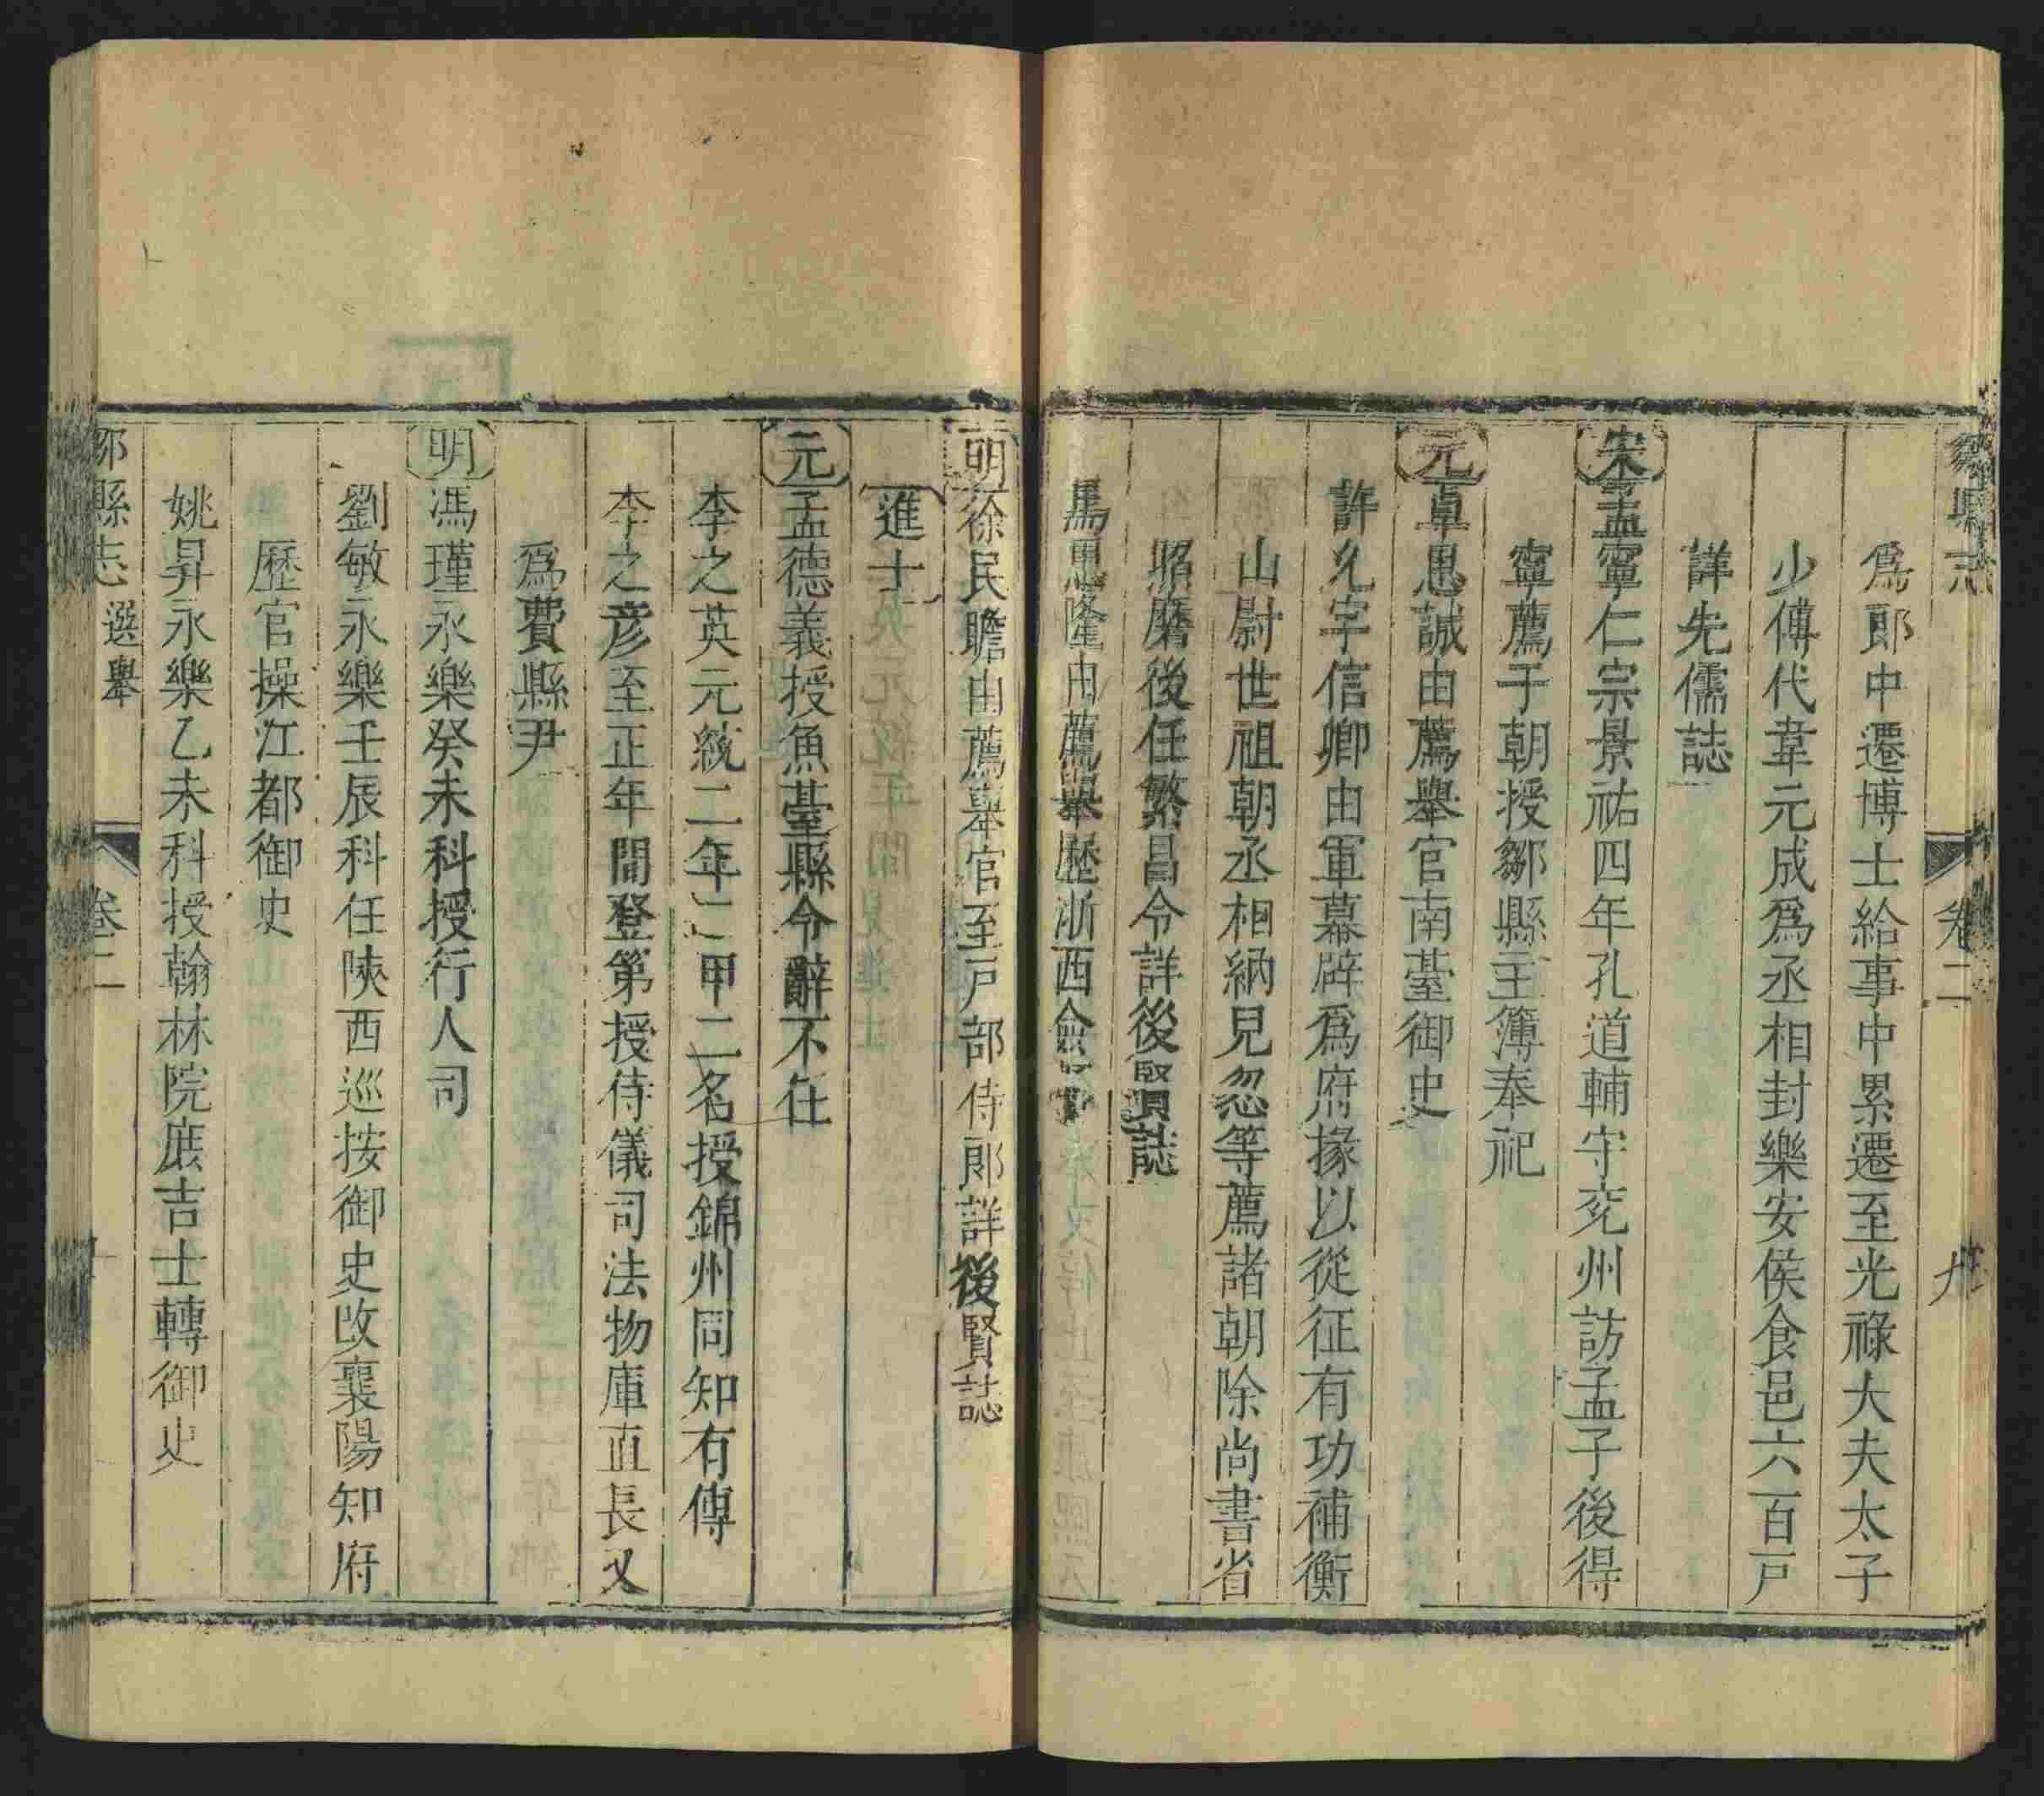 鄒縣志
卷二
爲郎中遷博士給事中累遷至光祿大夫太子
少傅代韋元成爲丞相封樂安侯食邑六百戸
詳先儒誌
宋孟寧仁宗景祐四年孔道輔守兖州訪孟子後得
寧薦于朝授鄒縣主簿奉祀
元卓思誠由薦舉官南臺御史
許允字信卿由軍幕辟爲府掾以從征有功補衡
山尉世祖朝丞相納兒忽等薦諸朝除尚書省
照磨後任繁昌令詳後賢誌
馬思隆由薦舉歷浙西僉
明徐民瞻由薦舉官至戸部侍郎詳後賢誌
進士
元孟德義授魚臺縣令辭不仕
李之英元統二年二甲二名授錦州同知有傳
李之彦至正年間登第授侍儀司法物庫直長又
爲費縣尹
明馮瑾永樂癸未科授行人司
劉敏永樂壬辰科任陝西巡按御史改襄陽知府
歷官操江都御史
姚昇永樂乙未科授翰林院庶吉士轉御史
鄒縣志
選舉
卷二
十